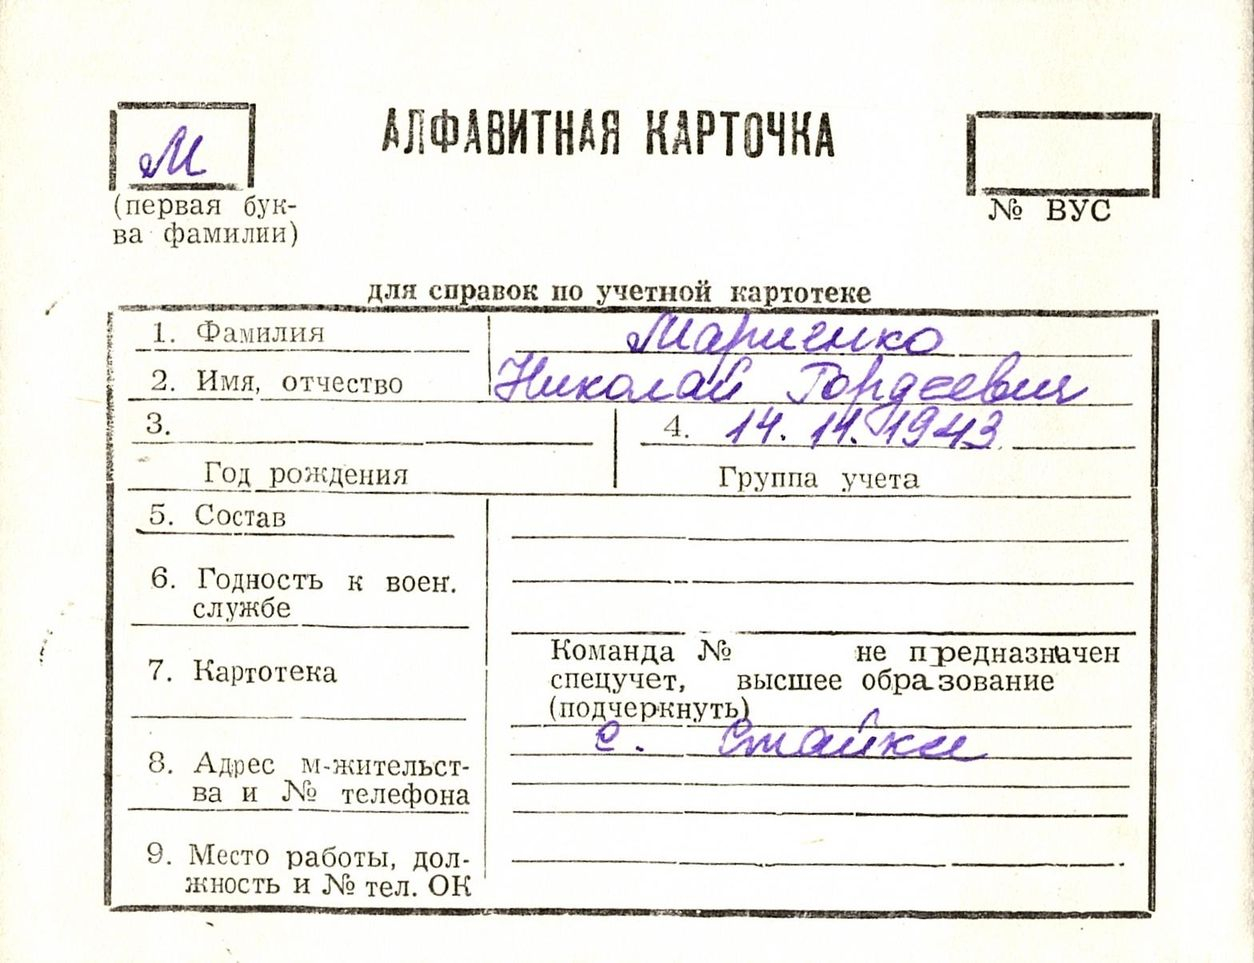 АЛФАВИТНАЯ КАРТОЧКА
М
(первая бук-
ва фамилии)
№ ВУС
для справок по учетной картотеке
1. Фамилия Мариенко
2. Имя, отчество Николай Гордеевич
3. 4. 14. 11. 1943
Год рождения Группа учета
5. Состав
6. Годность к воен.
службе
7. Картотека
Команда № не предназначен
спецучет, высшее образование
(подчеркнуть)
с. Стайки
8. Адрес м-жительст-
ва и № телефона
9. Место работы, дол-
жность и № тел. ОК